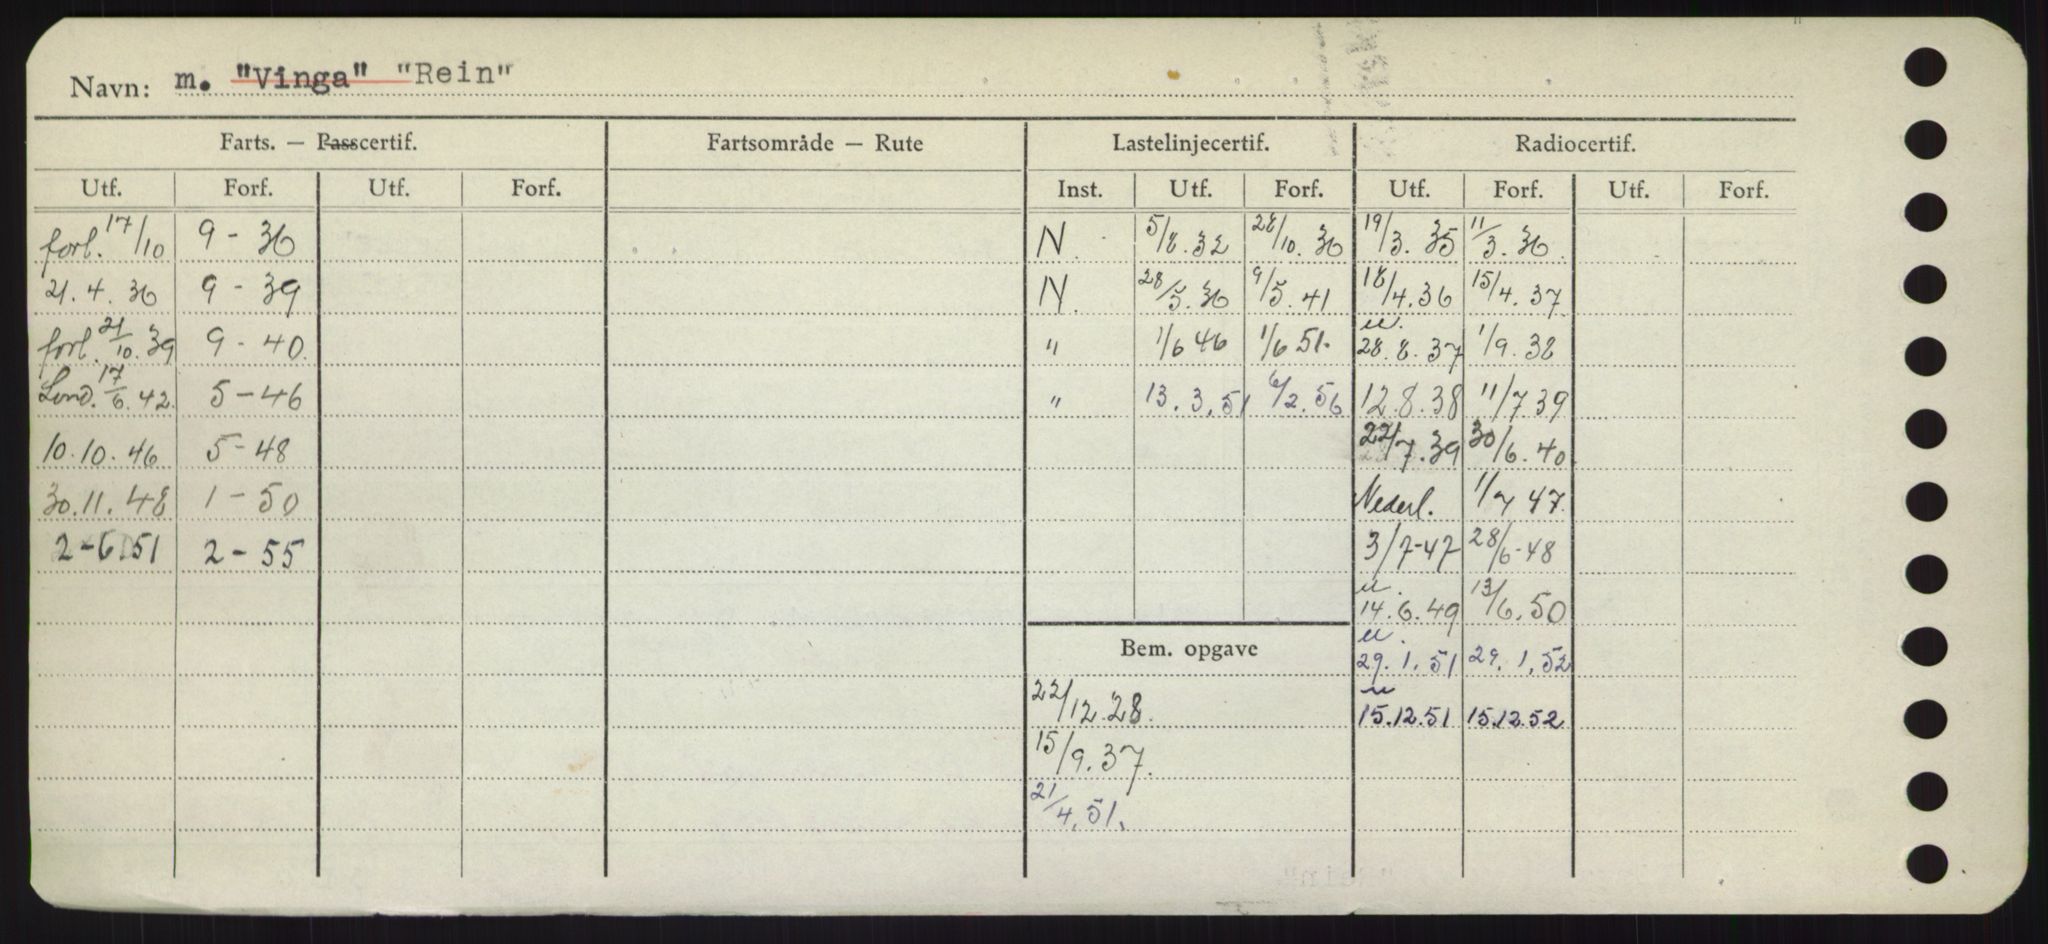 Navn: m. "Vinga" "Rein"
Farts. — Passcertif. Fartsområde — Rute Lastelinjecertif. Radiocertif.
Utf. Forf. Utf. Forf. Inst. Utf. Forf. Utf. Forf. Utf. Forf.
forl. 17/10 9 - 36 N. 5/8. 32 28/10. 36 19/3. 35 11/3. 36.
21. 4. 36 9 - 39 N. 28/5. 36 9/5. 41 18/4. 36 15/4. 37
forl. 21/10. 39 9 - 40. " 1/6 46 1/6 51. u. 28. 8. 37 1/9. 38
Lond. 17/6. 42. 5 - 46 " 13. 3. 51 6/2. 56 12. 8. 38 11/7 39
10. 10. 46 5 - 48 22/7. 39 30/6. 40.
30. 11. 48 1 - 50 Nederl. 1/7 47.
2 - 6 51 2 - 55 3/7-47 28/6-48
u. 14. 6. 49 13/6. 50
Bem. opgave u. 29. 1. 51 29. 1. 52
22/12. 28. u 15.12.51 15.12.52
15/9. 37.
21/4. 51.